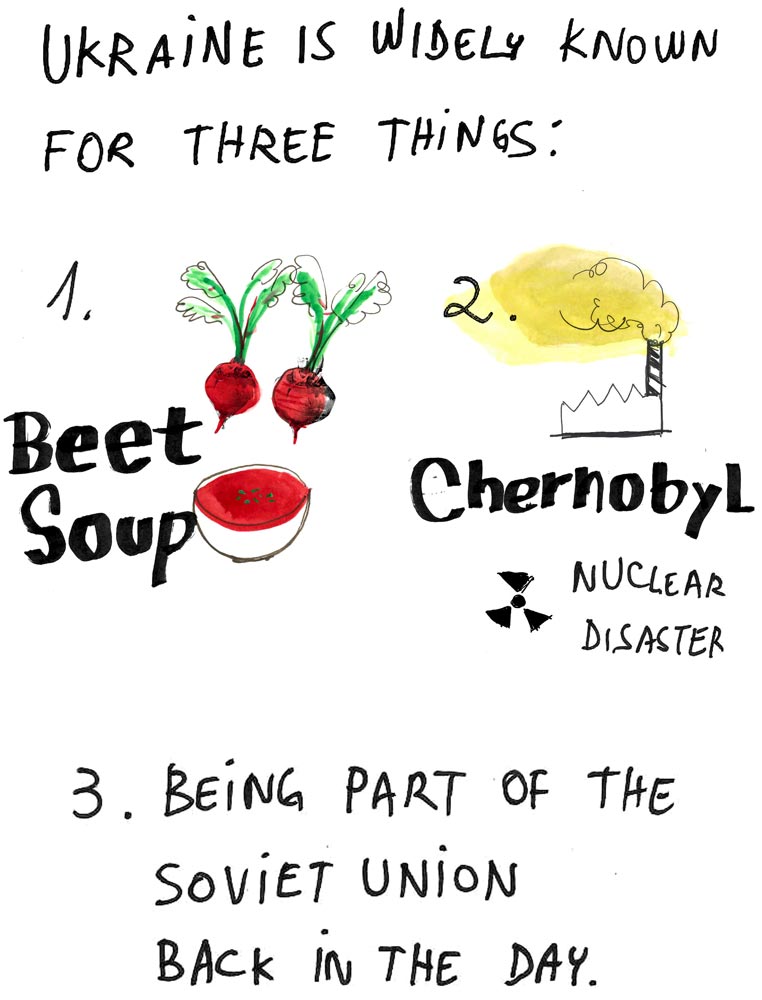 UKRAINE IS WIDELY KNOWN
FOR THREE THINGS:
1.
Beet
Soup
2.
Chernobyl
NUCLEAR
DISASTER
3. BEING PART OF THE
SOVIET UNION
BACK IN THE DAY.